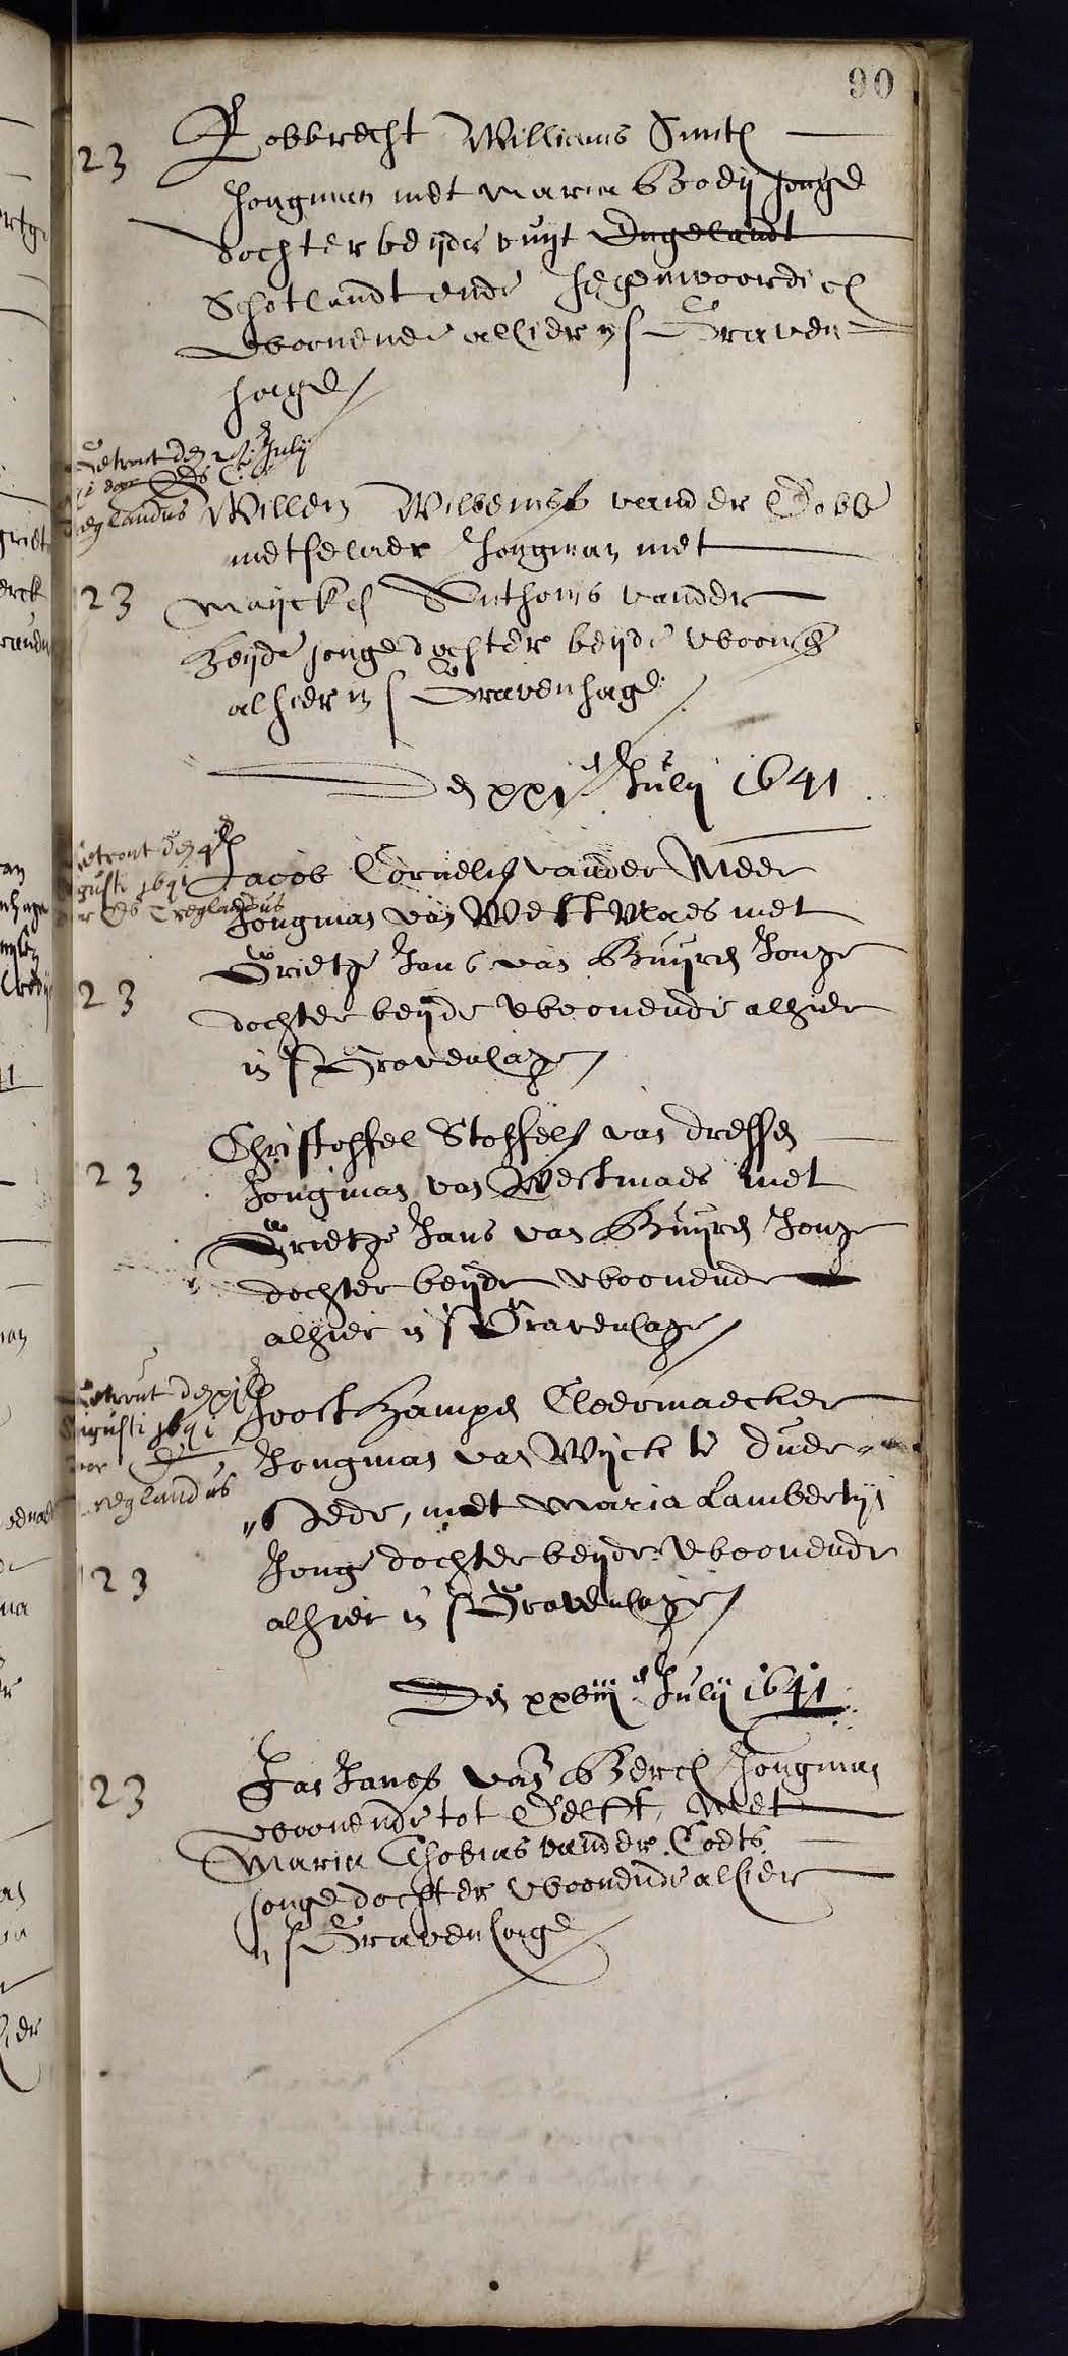 90
23
Robbrecht Williams Smith
Jongman met Maria Body Jonge
dochter beijde vuijt Engelandt
Schotlandt ende Jegenwoordich
woonende alhier in s Graven
hage
Getrout den July
door Ds
reglandus
Willem Willemss vander Dobb
metselaer Jongman met
23
Maijcken Anthonis vander
Heijde jonge dochter beijde woonen
alhier in s Gravenhage
Den xxien Julij 1641
Getrout den 4en
Augusti 1641
door Ds Treglandus
Jacob Cornelis vander Meer
Jongman van West Maes met
23
Grietge Jans van Buijren Jonge
dochter beijde woonende alhier
in s Gravenhage
23
Christoffel Stoffels van dressen
Jongman van Westmaes met
Grietge Jans van Buijren Jonge
dochter beijde woonende
alhier in s Gravenhage
Getrout den xien
Augusti 1641
door Ds
reglandus
Joost Hampen Cleermaecker
Jongman van Wijck te duer
stede, met Maria Lambertijs
23
Jonge dochter beijde woonende
alhier in s Gravenhage
Den xxviiien Julij 1641
23
Jan Janss van Berch Jongman
woonende tot Delfft, Met
Maria Thobias vander Coets
jonge dochter woonende alhier
in s Gravenhage